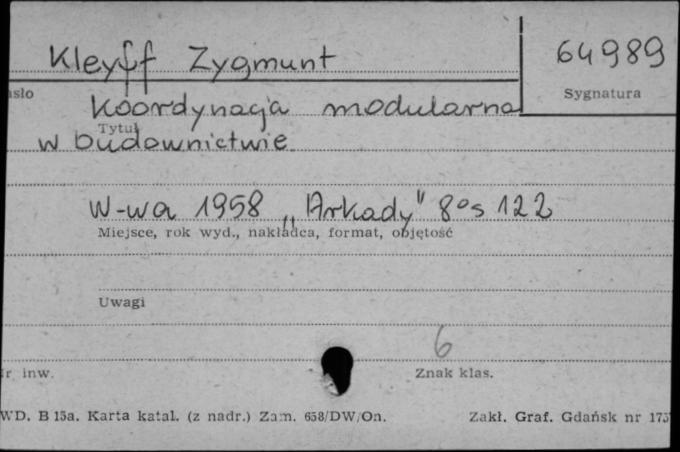 Kleyff Zygmunt
64989
Sygnatura
Koordynacja modularna
Tytuł
w budownictwie
W-wa 1958 „Arkady" 8° s 122
Miejsce, rok wyd., nakładca, format, objętość
Uwagi
6
inw.
Znak klas.
WD. B 15a. Karta katal. (z nadr.) Zam. 658/DW/On.
Zakł. Graf. Gdańsk nr